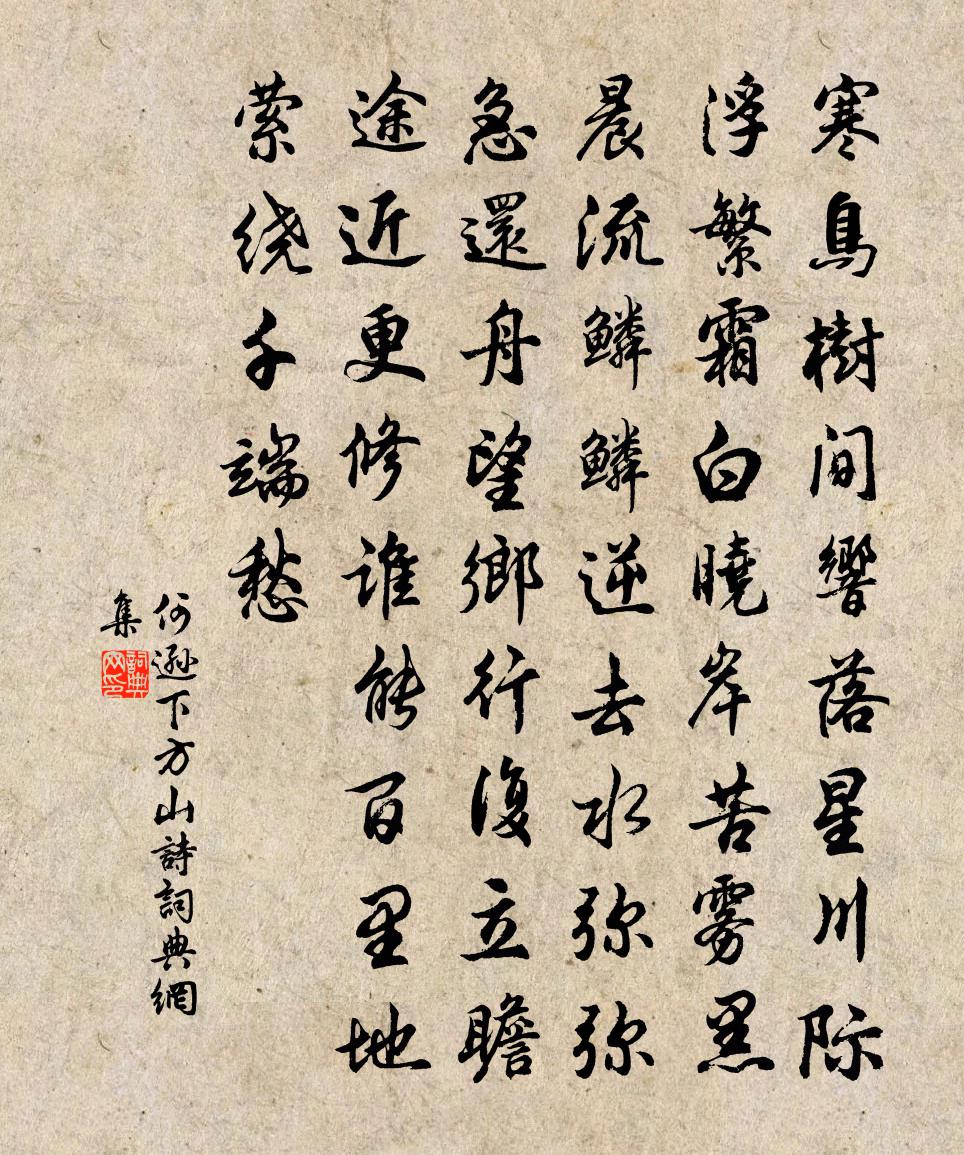 寒鳥樹間響落星川际
浮繁霜白曉岸苦雾黑
晨流鳞鳞逆去水弥弥
急還舟望鄉行復立瞻
途近更修誰能百里地
萦绕千端愁
何遜下方山詩詞典網
集
詞典网印